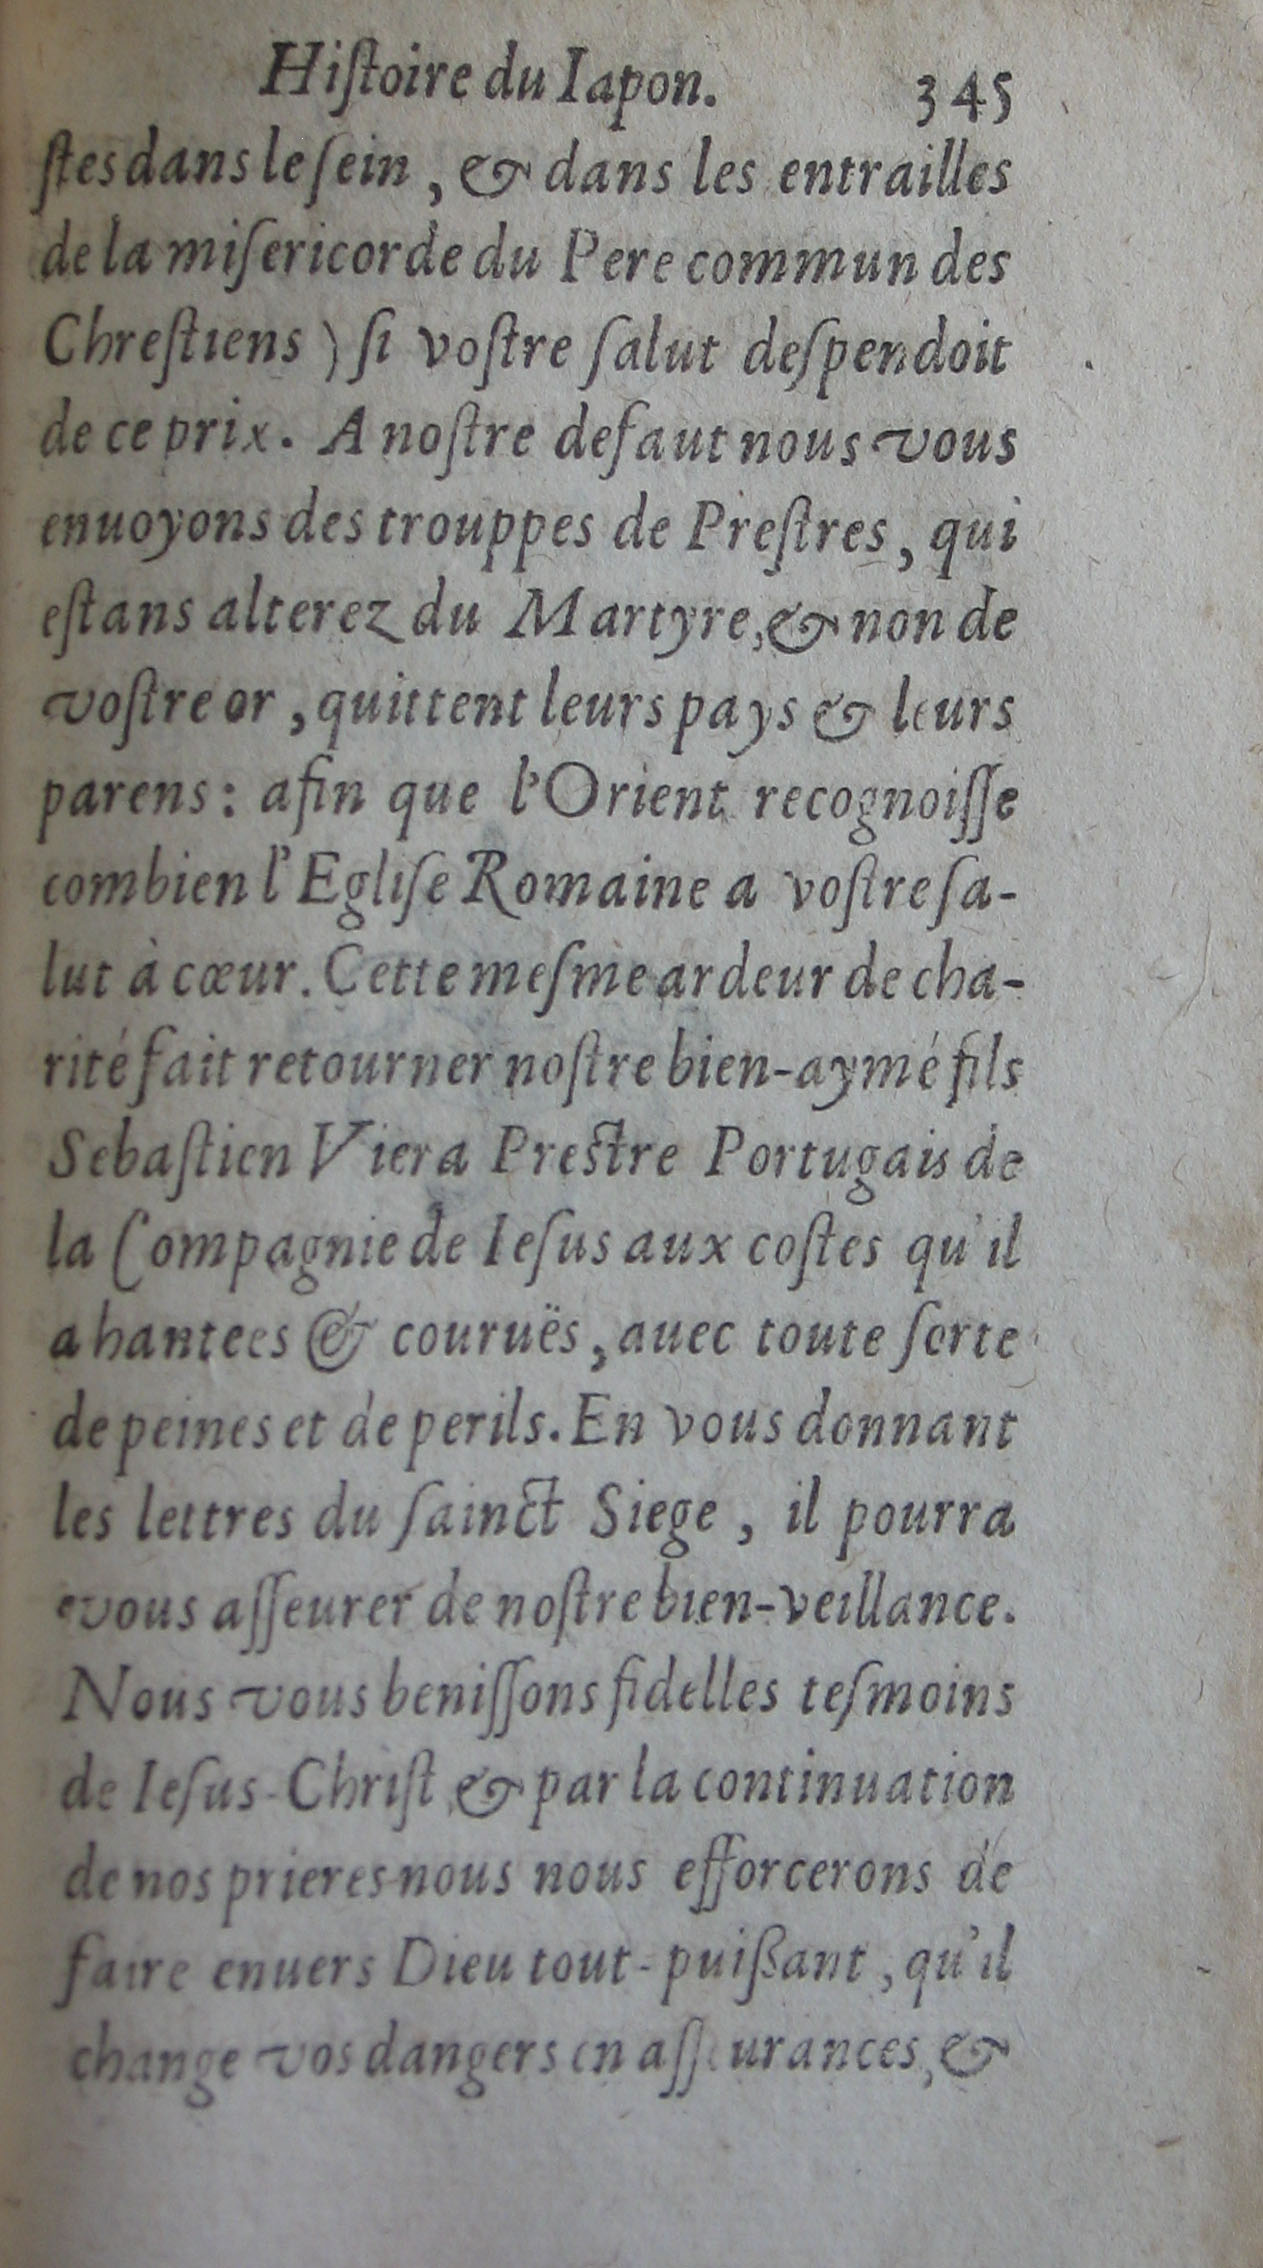 Hiſtoire du Iapon. 345
ſtes dans le ſein, & dans les entrailles
de la miſericorde du Pere commun des
Chreſtiens ) ſi voſtre ſalut deſpendoit
de ce prix. A noſtre defaut nous vous
enuoyons des trouppes de Preſtres, qui
eſtans alterez du Martyre, & non de
voſtre or, quittent leurs pays & leurs
parens: afin que l'Orient recognoiſſe
combien l'Egliſe Romaine a voſtre ſa-
lut à cœur. Cette meſme ardeur de cha-
rité fait retourner noſtre bien-aymé fils
Sebaſtien Viera Preſtre Portugais de
la Compagnie de Ieſus aux coſtes qu'il
a hantees & couruës, auec toute ſorte
de peines et de perils. En vous donnant
les lettres du ſainct Siege, il pourra
vous aſſeurer de noſtre bien-veillance.
Nous vous beniſſons fidelles teſmoins
de Ieſus-Chriſt, & par la continuation
de nos prieres nous nous efforcerons de
faire enuers Dieu tout-puißant, qu'il
change vos dangers en aſſeurances, &